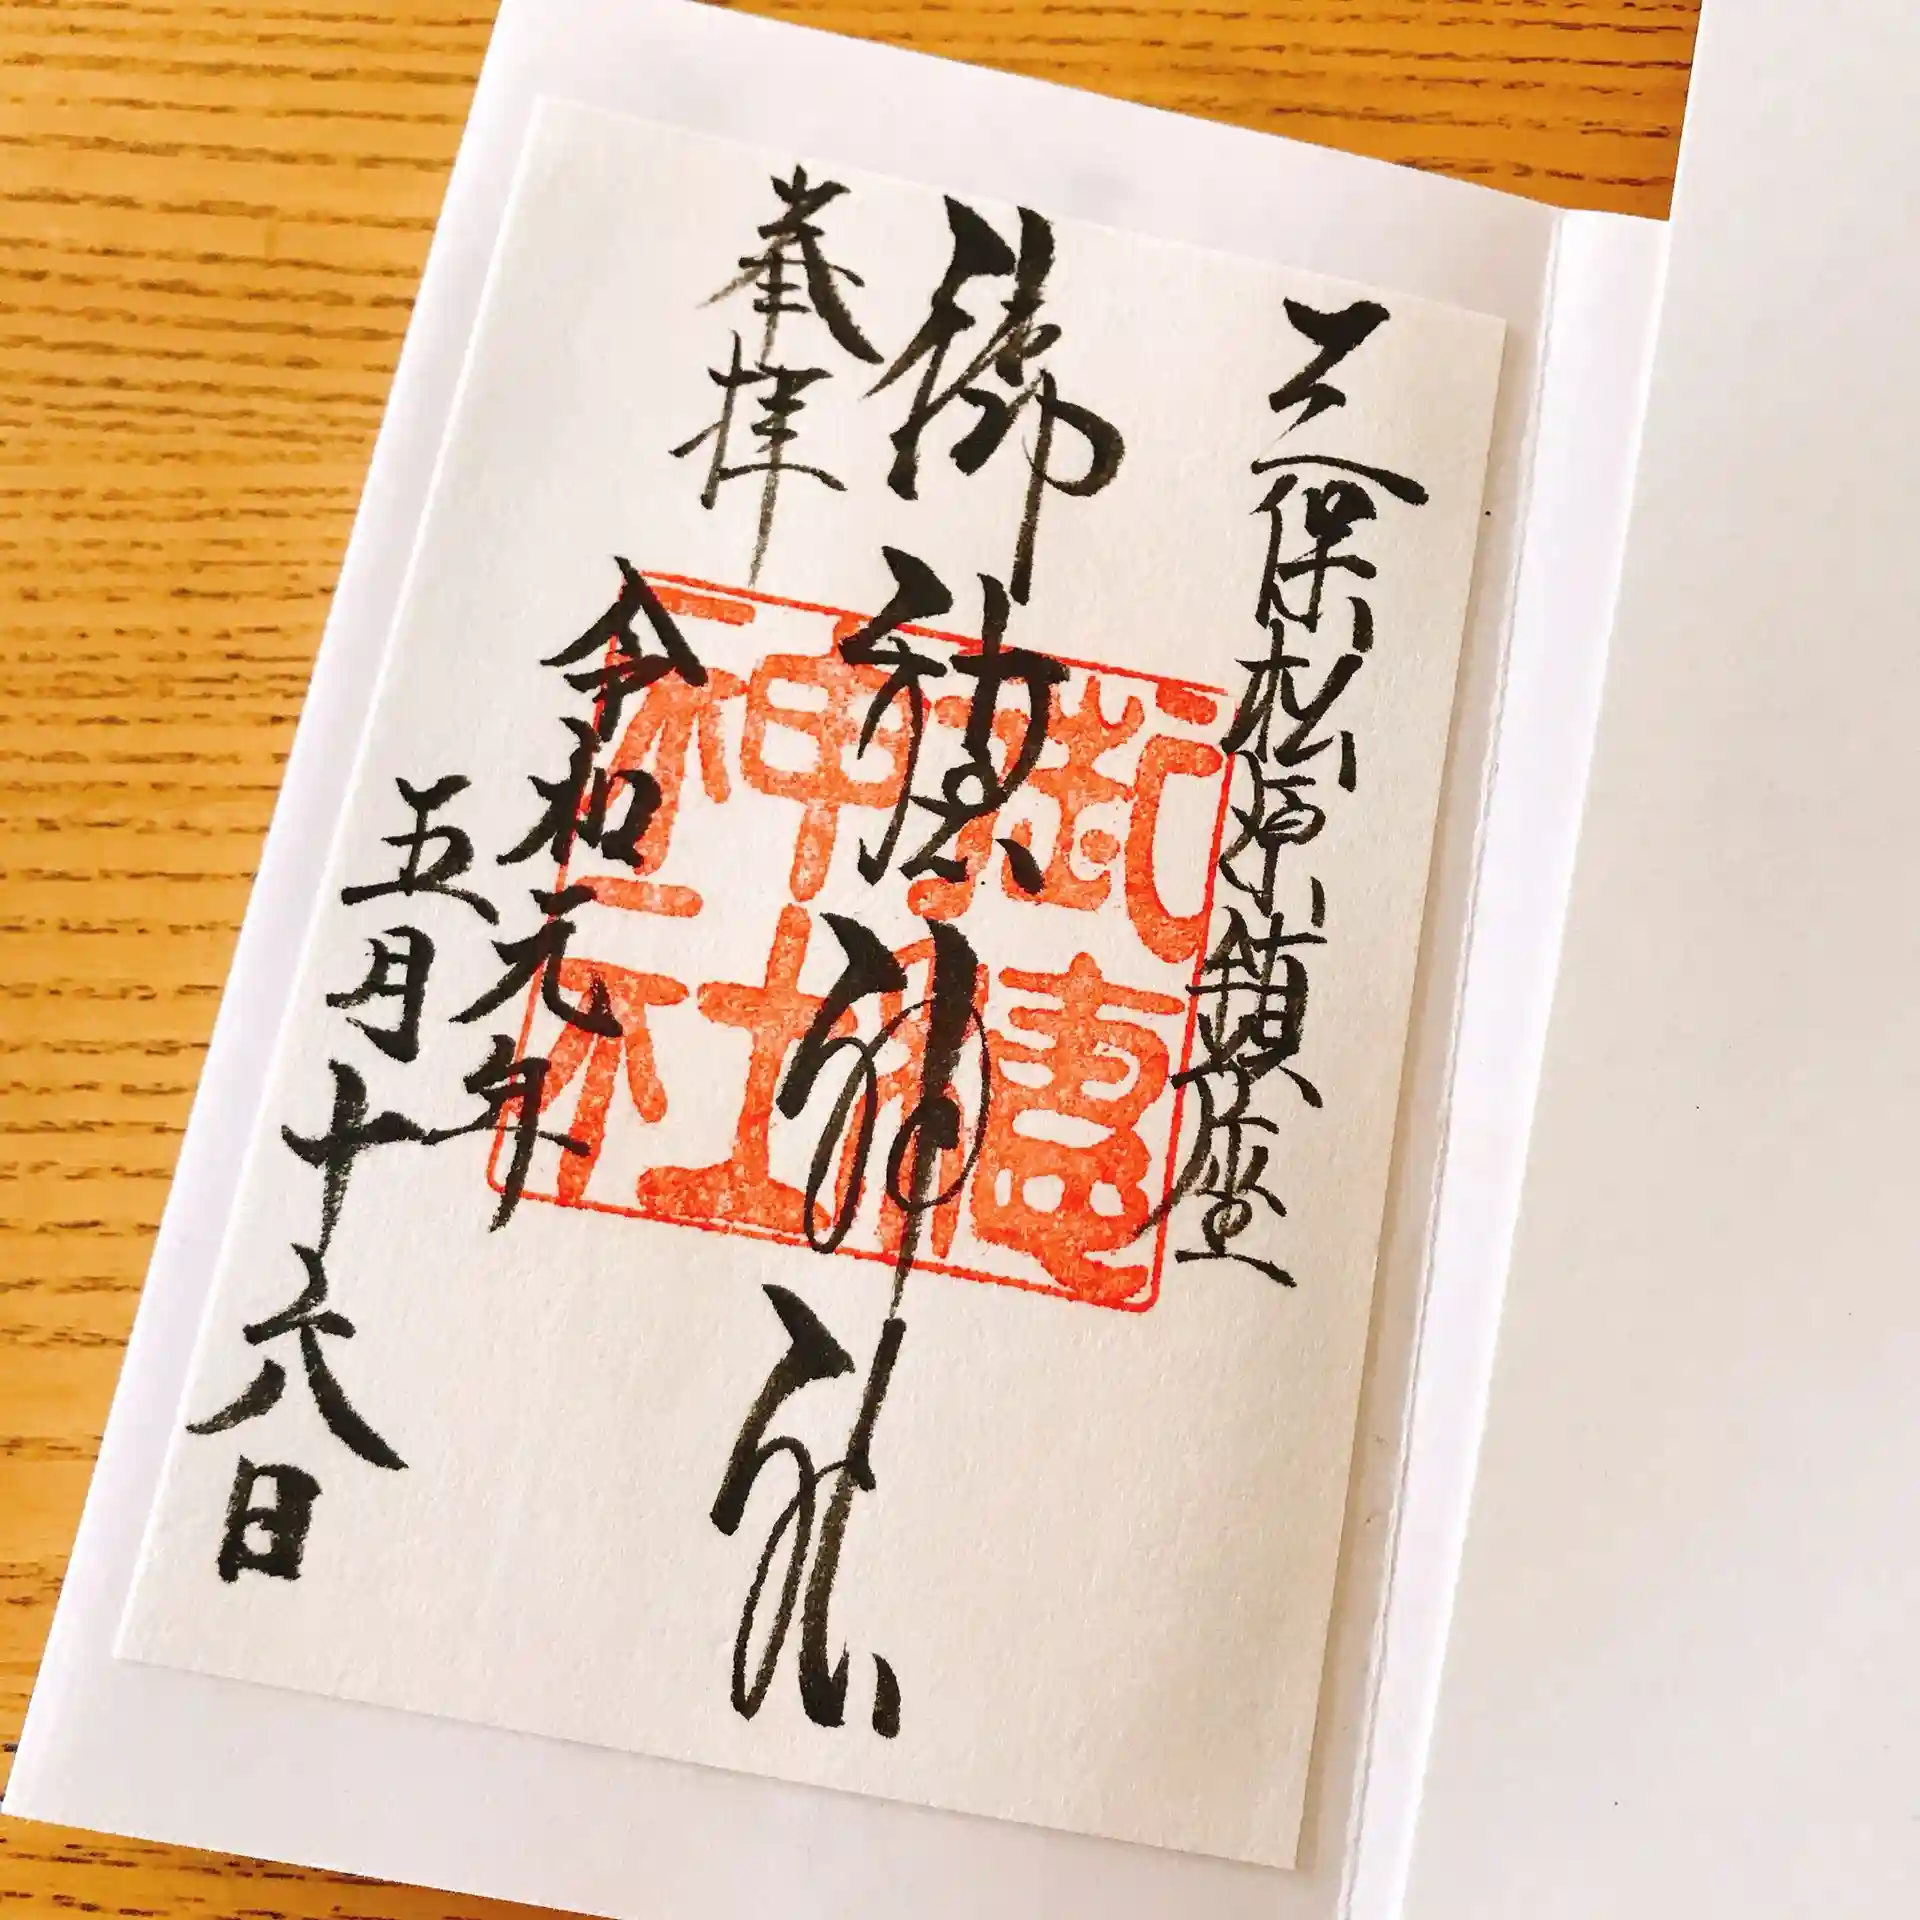 三保松原鎮座
御穂神社
奉拝
令和元年
五月十六日
御穂神社